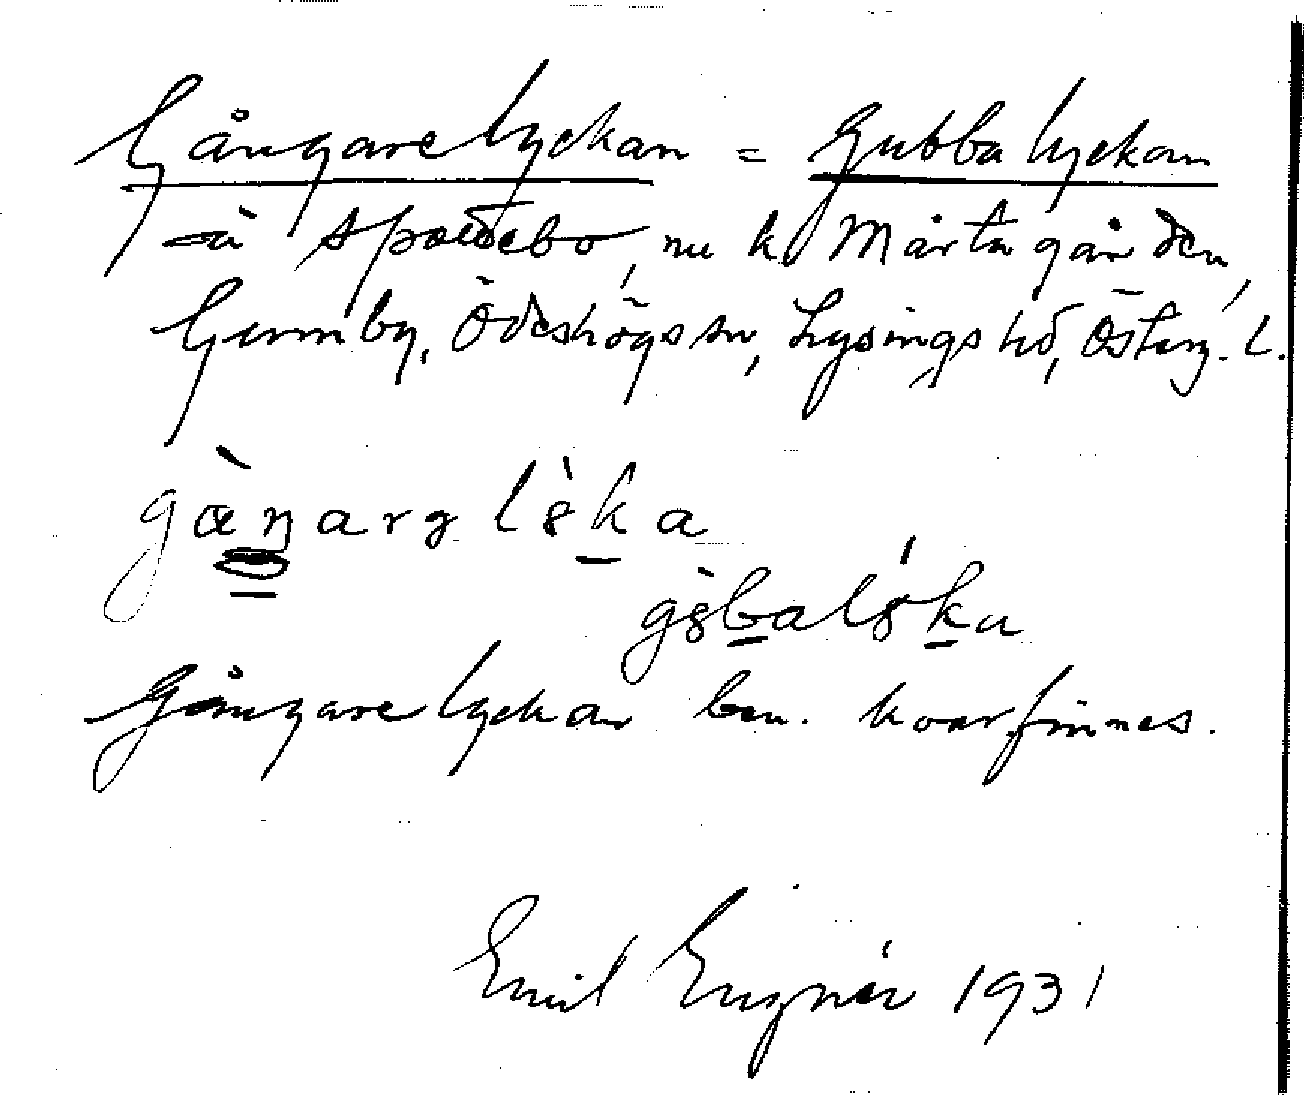 Gångarelyckan = Gubbalyckan
å Spadebo, nu k Mårtagården,
Ödeshögs sn, Lysings hd, Österg. L.
Gångarelyckan ben. kvarfinnes.
Emil Engnér 1931